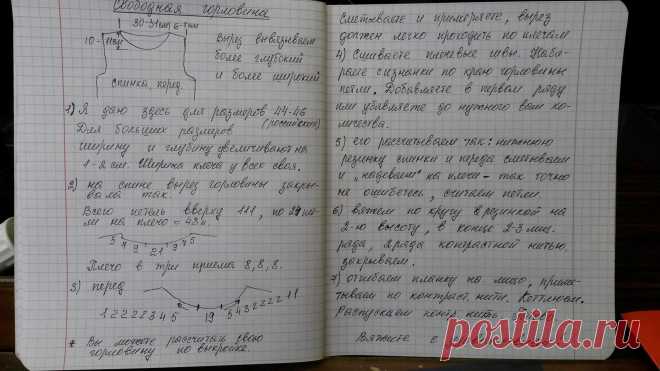 Свободная горловина
30-31см, 6-7см
10-11см
Вырез вывязываем
более глубокий
и более широкий
спинка, перед.
1) Я даю здесь для размеров 44-46
(российских)
Для больших размеров
ширину и глубину увеличивают на
1-2 см. Ширина плеча у всех своя.
2) на спине вырез горловины закры-
вала так:
Всего петель вверху 111, по 24 пет-
ли на плечо =
5 7 9 21 9 7 5
Плечо в три приема 8, 8, 8.
3) перед
1 2 2 2 2 3 4 5 19 5 4 3 2 2 2 2 1 1
* Вы можете рассчитать свою
горловину по выкройке.
Сметываете и примеряете, вырез
должен легко проходить по плечам
4) Сшиваете плечевые швы. Наби-
раете с изнанки по краю горловины
петли. Добавляете в первом ряду
или убавляете до нужного вам ко-
личества.
5) его рассчитываем так: нижнюю
резинку спинки и переда сметываем
и „надеваем" на плечи - так точно
не ошибетесь, считаем петли.
6) вяжем по кругу в резинкой на
2-ю высоту, в конце 2-3 лиц.
ряда, 2 ряда контрастной нитью.
закрываем.
7) отгибаем планку на лицо, приме-
тываем по контраст. нити. Кеттлюем.
Распускаем контр. нить,
Вяжите с
Posti.ru